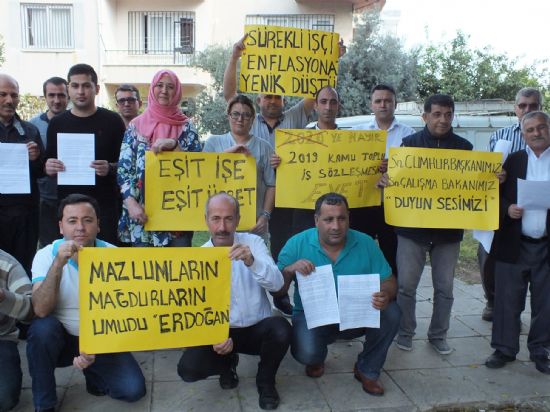 SÜREKLİ İŞÇİ
ENFLASYONA
YENİK DÜŞTÜ
EŞİT İŞE
EŞİT ÜCRET
2020'YE HAYIR
2019 KAMU TOPLU
İŞ SÖZLEŞMESİ
EVET
Sn CUMHURBAŞKANIMIZ
Sn ÇALIŞMA BAKANIMIZ
"DUYUN SESİNİZİ"
MAZLUMLARIN
MAĞDURLARIN
UMUDU "ERDOĞAN